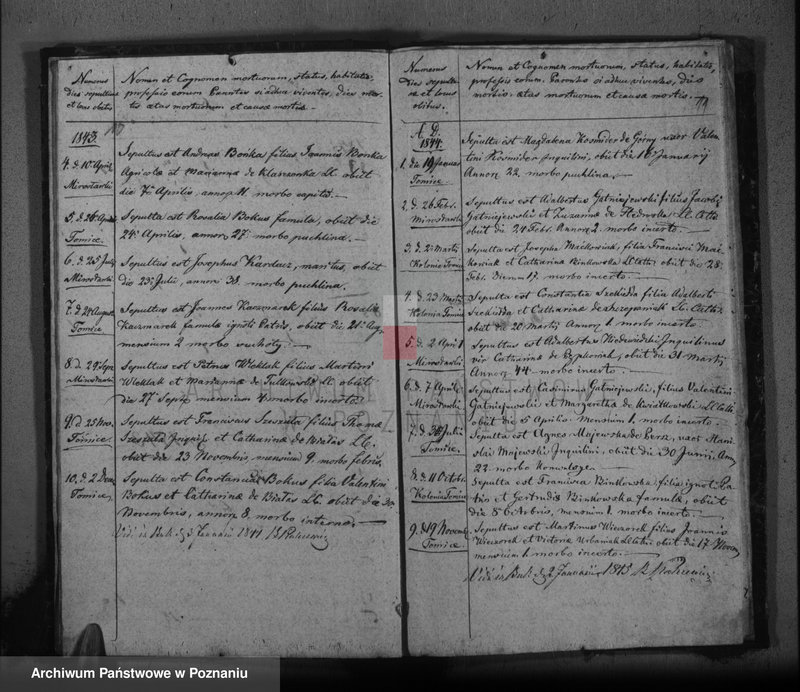 Numerus
dies sepulturae
et locus obitus
Nomen et Cognomen mortuorum, status, habitatio,
professio eorum Parentes si adhuc viventes, dies mor-
tis aetas mortuorum et causae mortis.
1843.
4. d. 10 April
Mirosławki
Sepultus est Andreas Bońka filius Joannis Bonka
Agricola et Marianna de Klaszonka LC. obiit
die 7 Aprilis, annor. 11 morbo capitis.
5. d. 26 April
Tomice
Sepulta est Rosalia Bokus famula, obiit die
24 Aprilis, annor 27 morbo puchlina.
6. d. 25 July
Mirosławki
Sepultus est Josephus Kardacz, maritus, obiit
die 23 Julii, annor 38 morbo puchlina.
7. d. August
Tomice
Sepultus est Joannes Kaczmarek filius Rosalia
Kaczmarek famula ignoti Patris, obiit die 21 Aug.
mensium 2 morbo suchoty.
8. d. 29 Sept
Mirosławki
Sepultus est Petrus Wloklak filius Martini
Wloklak et Marianna de LC. obiit
die 27 Septr. mensium 4 morbo incerto.
9. d. 25 Nov.
Tomice.
Sepultus est Franciscus Szeszuła filius Thoma
Szeszuła et Catharina de Bialas LC.
obiit die 23 Novembris, mensium 9 morbo febris.
10. d. 2 Dec
Tomice,
Sepulta est Constancia Bokus filia Valentini
Bokus et Catharina de Bialas LC. obiit die 30
Novembris, annor 8. morbo interno.
Vidi in Buk d. 3 Januarii 1844
Numerus
Dies sepultu-
rae et locus
obitus.
Nomen et Cognomen mortuorum, status, habitatio,
professio eorum. Parentes si adhuc viventes, dies
morbis aetas mortuorum et causae mortis.
A. D.
1844.
1. die 19 Januar
Tomice.
Sepulta est Magdalena Kosmider de Górny uxor Valen-
tini Kosmider Inquilini, obiit die 16 January
Annor 22. morbo puchlina.
2. d. 26 Febr.
Mirosławki
Sepultus est Adalbertus Gatniejewski filius Jacobi
Gatniejewski et Zuzanna de LC. Cath.
obiit die 24 Febr. Annor 2. morbo incerto.
3. d. 2 Martj
Kolonia Tomice
Sepulta est Josepha Maćkowiak filia Francisci Mać-
kowiak et Catharina Binkowska LC. Cath: obiit die 28
Febr. Dierum 17. morbo incerto.
4. d. 23 Martj
Kolonia Tomice
Sepulta est Constantia filia Adalberti
et Catharina de Szczepaniak LC. Cath.
obiit die 20 Martj Annor 1. morbo incerto.
5. d. 2 April
Mirosławki
Sepultus est Adalbertus Inquilinus
vir Catharina de obiit die 31 Martj
Annor. 44. morbo incerto.
6. d. 7 April
Mirosławki
Sepultus est, Casimirus Gatniejewski, filius Valentini
Gatniejewski et Margaretha de Kwiatkowski LC. Cath.
obiit die 5 Aprilis. Mensium 1. morbo incerto.
7. d. Julii
Tomice.
Sepulta est Agnes Majewska de Perz, uxor Stani-
slai Majewski Inquilini, obiit die 30 Junii, Ann
22 morbo
8. d. 11 Octobr.
Kolonia Tomice
Sepulta est Francisca Binkowska, filia ignot. Pa-
tris et Gertrudis Binkowska famula, obiit
die 8 Octobris, mensium 1. morbo incerto.
9. d. 19 Novemb
Tomice.
Sepultus est Martinus Wieczorek filius Joannis
Wieczorek et Victoria Urbaniak LC. Cath. obiit die 17 Novem
mensium 1. morbo incerto.
Vidi in Buk d. 2 Januarii 1845
Archiwum Państwowe w Poznaniu